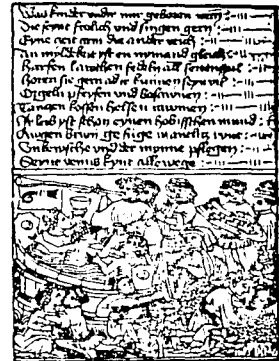 Was kinder under mir geboren werden
Die seint frolich und singen gern
Eyne zeit arm die ander reich
An miltikeit ist en nymand gleich
Harfen lauthen seiten all
Horen sie gern ader kunnen
Orgeln pfeifen und bosunen
Tanzen kossen helsen
Ir leip ist schon eynen hobisschen mund
Augen brun gefuge
Unkeusche und der mynne pflegen
Seint venus kynt allewege